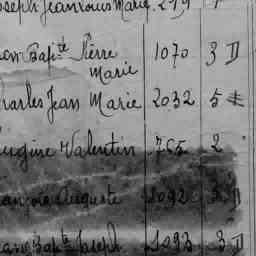 oseph Jean Louis Marie 219 1
ean Bapte Pierre 1070 3 D
Marie
harles Jean Marie 2032 5
ugine Valentin 765 2
ançois Auguste 2092 3 D
ean Bapte Joseph 1093 3 D